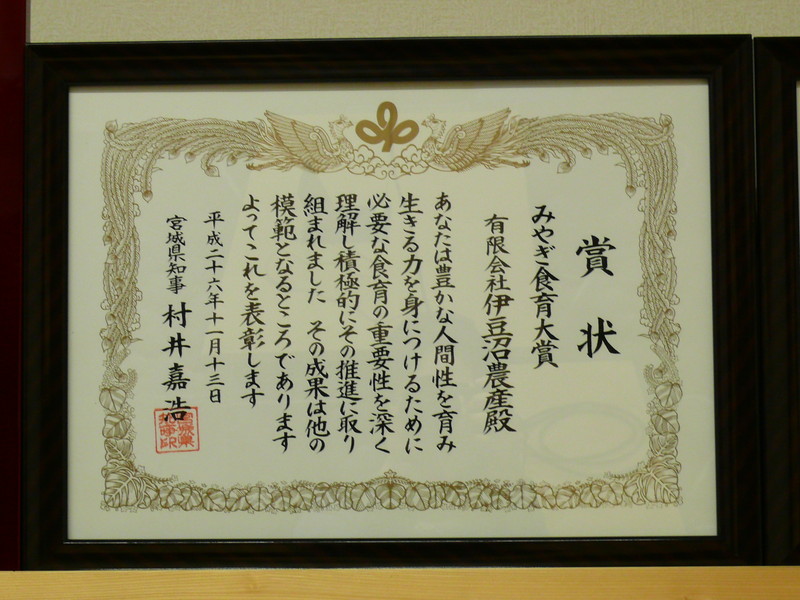 賞状
みやぎ食育大賞
有限会社伊豆沼農産殿
あなたは豊かな人間性を育み
生きる力を身につけるために
必要な食育の重要性を深く
理解し積極的にその推進に取り
組まれました その成果は他の
模範となるところであります
よってこれを表彰します
平成二十六年十一月十三日
宮城県知事 村井嘉浩